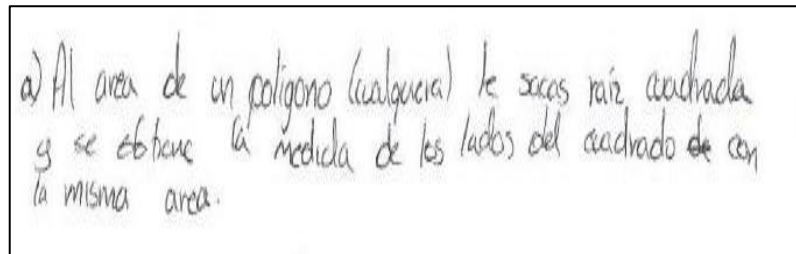 a) Al area de un poligono (cualquiera) le sacas raiz cuadrada
y se obtiene la medida de los lados del cuadrado de con
la misma area.